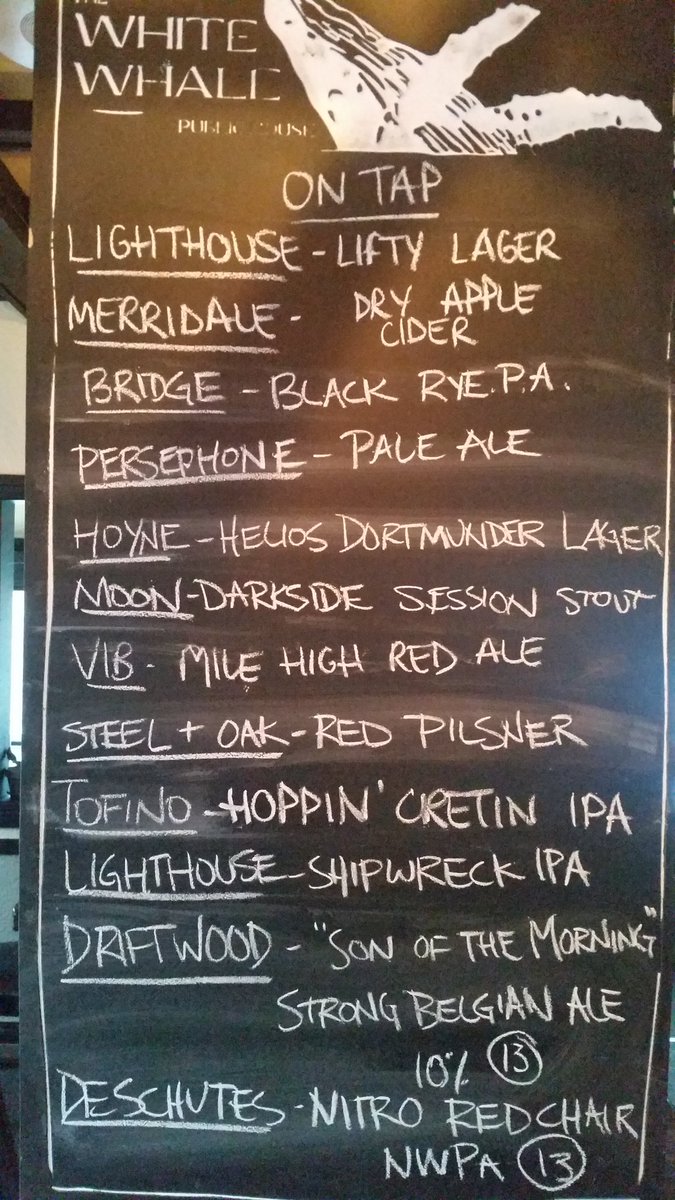 THE
WHITE
WHALE
PUBLIC HOUSE
ON TAP
LIGHTHOUSE - LIFTY LAGER
MERRIDALE - DRY APPLE
CIDER
BRIDGE - BLACK RYE.P.A.
PERSEPHONE - PALE ALE
HOYNE - HELIOS DORTMUNDER LAGER
MOON - DARKSIDE SESSION STOUT
VIB - MILE HIGH RED ALE
STEEL + OAK - RED PILSNER
TOFINO - HOPPIN' CRETIN IPA
LIGHTHOUSE - SHIPWRECK IPA
DRIFTWOOD - "SON OF THE MORNING"
STRONG BELGIAN ALE
10% 13
DESCHUTES - NITRO RED CHAIR
NWPA 13